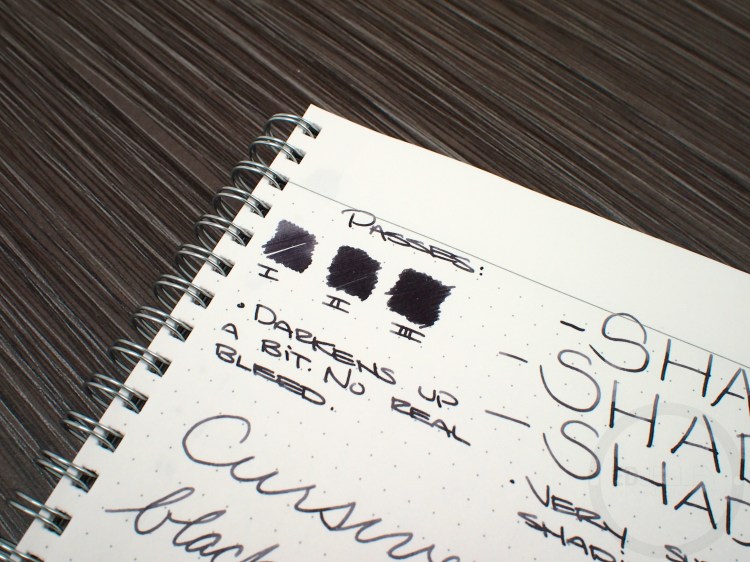 PASSES:
I II III
• DARKENS UP
A BIT. NO REAL
BLEED.
-SHA
-SHAD
-SHAD
• VERY
SHAD
Cursive
black